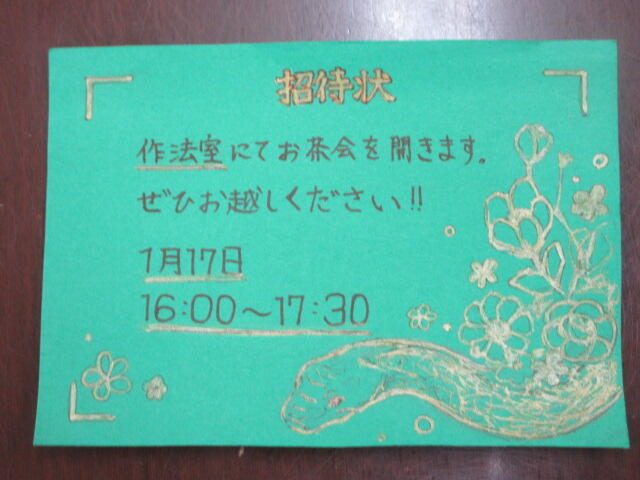 招待状
作法室にてお茶会を開きます。
ぜひお越しください!!
1月17日
16:00～17:30